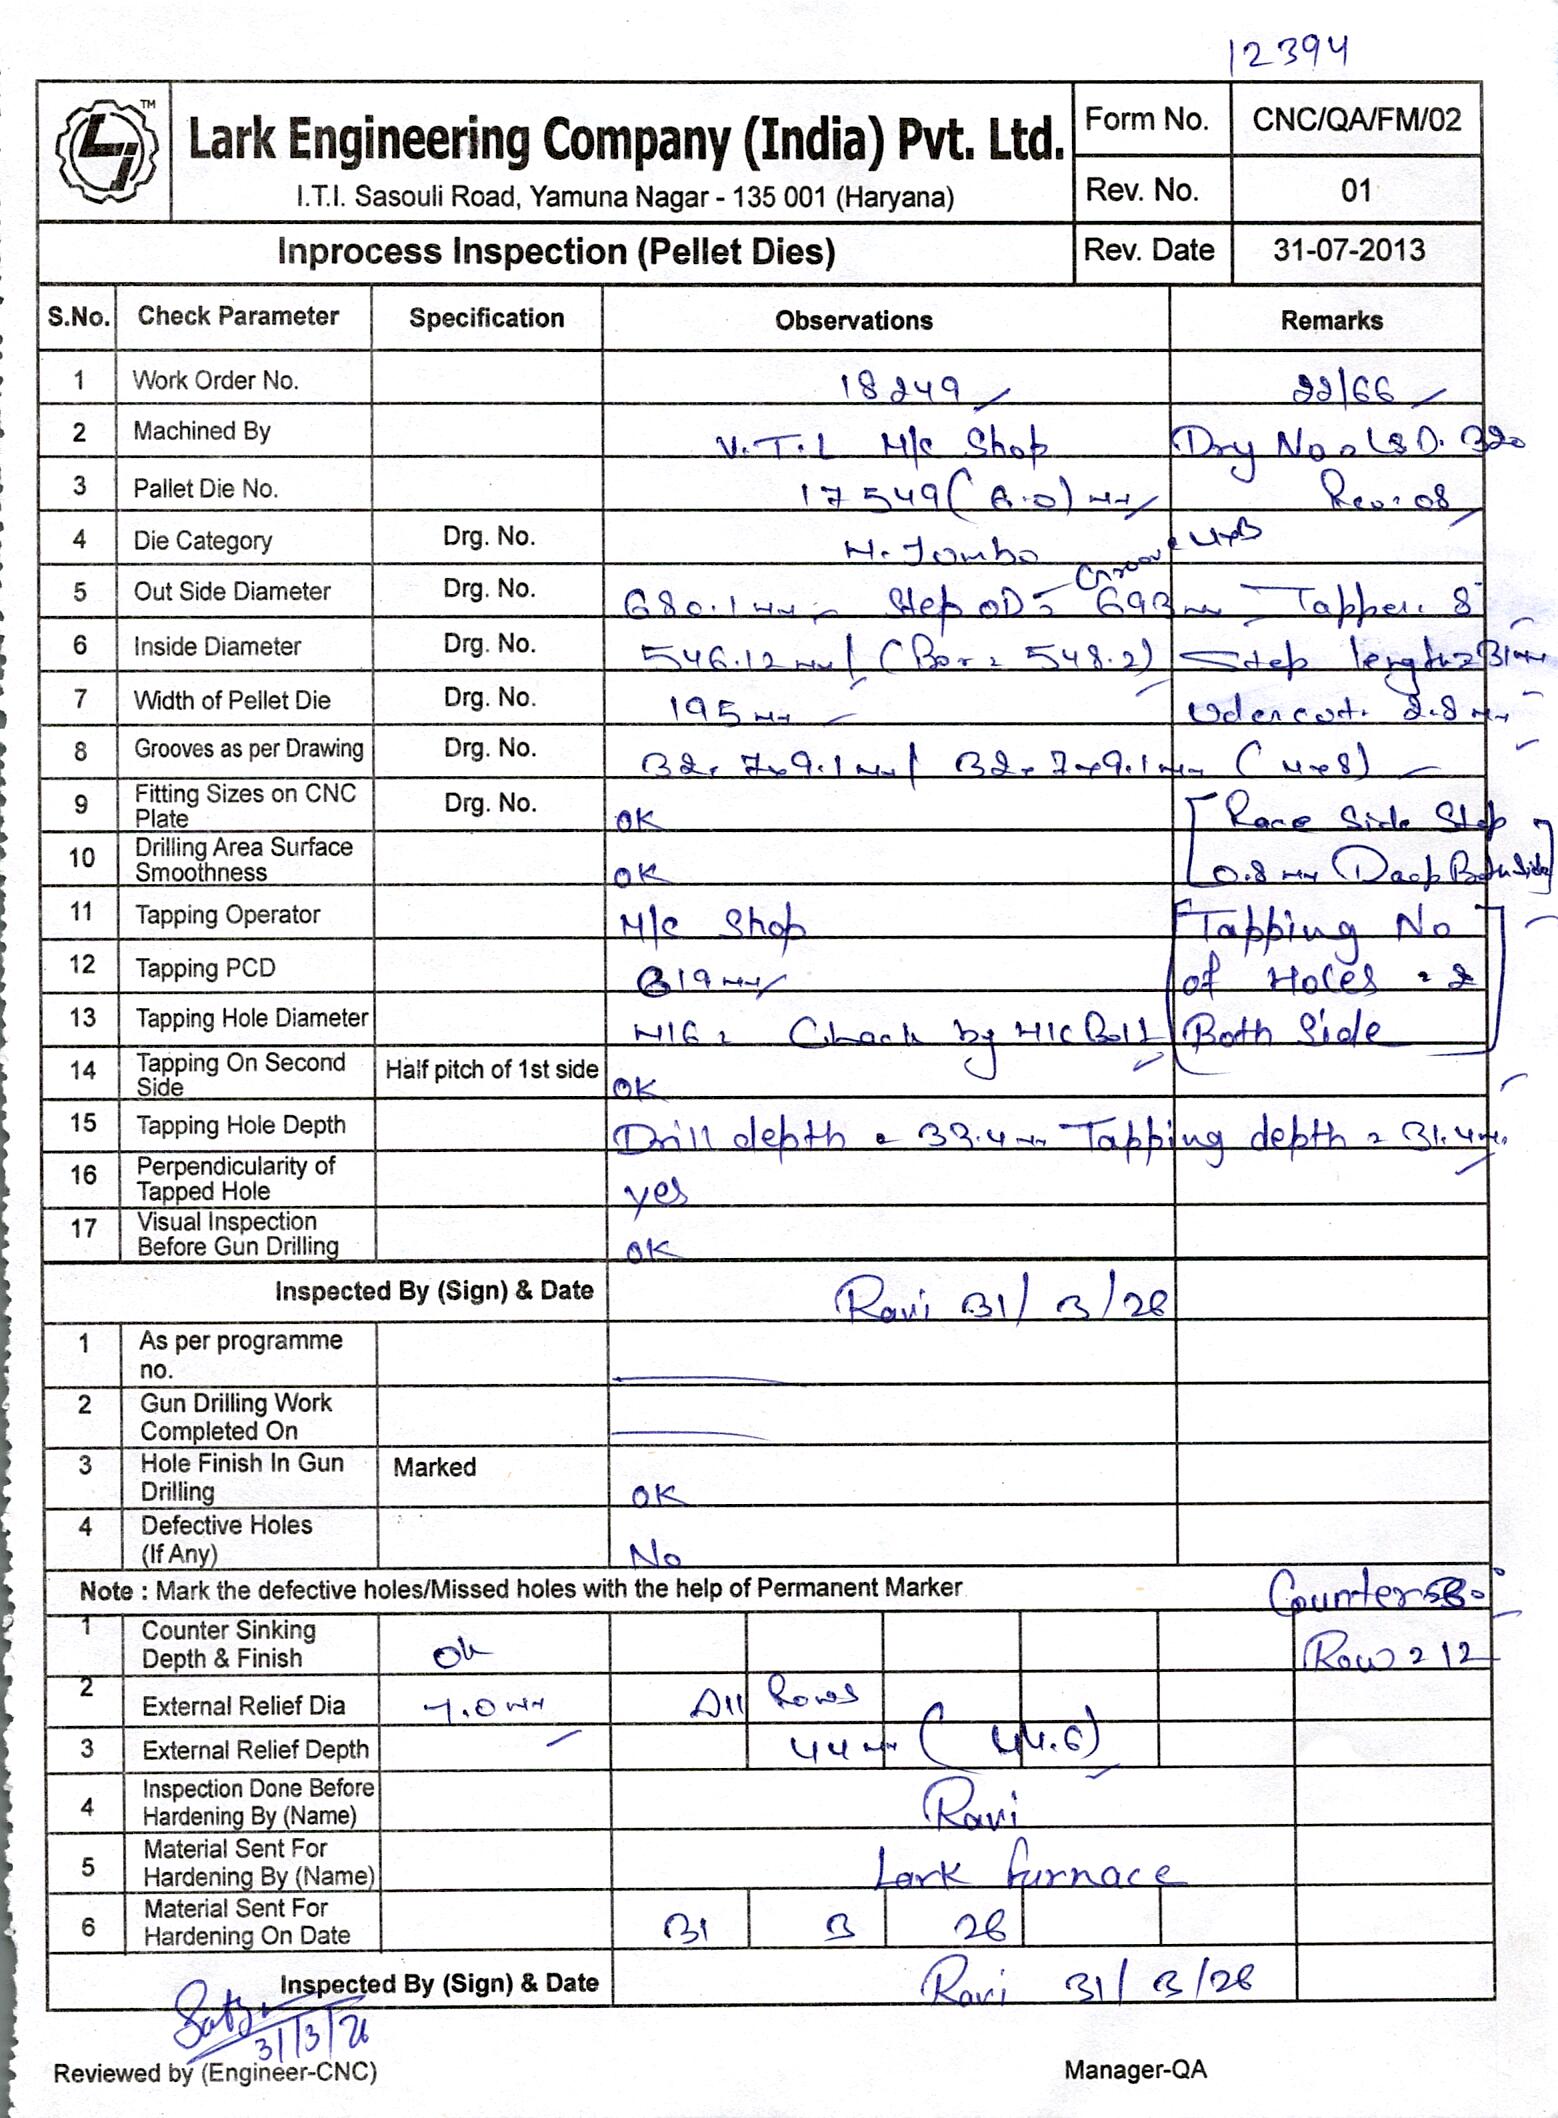 12394
LJ TM
Lark Engineering Company (India) Pvt. Ltd.
I.T.I. Sasouli Road, Yamuna Nagar - 135 001 (Haryana)
Form No. CNC/QA/FM/02
Rev. No. 01
Inprocess Inspection (Pellet Dies) Rev. Date 31-07-2013
S.No. Check Parameter Specification Observations Remarks
1 Work Order No. 18249 22/66
2 Machined By V.T.L M/c Shop
3 Pallet Die No. 17549 Rev: 08
4 Die Category Drg. No. H. Jombo
5 Out Side Diameter Drg. No. 680.1 mm Step OD = 693 mm Tapper: 8°
6 Inside Diameter Drg. No. 546.12 mm (Bor = 548.2) Step length = 31 mm
7 Width of Pellet Die Drg. No. 195 mm Udercut: 2.8 mm
8 Grooves as per Drawing Drg. No. 32 × 7 × 9.1 mm / 32 × 7 × 9.1 mm (4×8)
9 Fitting Sizes on CNC Plate Drg. No. OK [Race Side Step
10 Drilling Area Surface Smoothness OK 0.8 mm Deep Both Side]
11 Tapping Operator M/c Shop [Tapping No
12 Tapping PCD 619 mm of Holes = 2
13 Tapping Hole Diameter M16 = Check by M16 Bolt Both Side]
14 Tapping On Second Side Half pitch of 1st side OK
15 Tapping Hole Depth Drill depth = 33.4 mm Tapping depth = 31.4 mm
16 Perpendicularity of Tapped Hole yes
17 Visual Inspection Before Gun Drilling OK
Inspected By (Sign) & Date Ravi 31/3/26
1 As per programme no.
2 Gun Drilling Work Completed On
3 Hole Finish In Gun Drilling Marked OK
4 Defective Holes (If Any) No
Note : Mark the defective holes/Missed holes with the help of Permanent Marker
1 Counter Sinking Depth & Finish Ok Row = 12
2 External Relief Dia 7.0 mm All Rows
3 External Relief Depth 44 mm (44.6)
4 Inspection Done Before Hardening By (Name) Ravi
5 Material Sent For Hardening By (Name) Lark furnace
6 Material Sent For Hardening On Date 31 3 26
Inspected By (Sign) & Date Ravi 31/3/26
31/3/26
Reviewed by (Engineer-CNC) Manager-QA